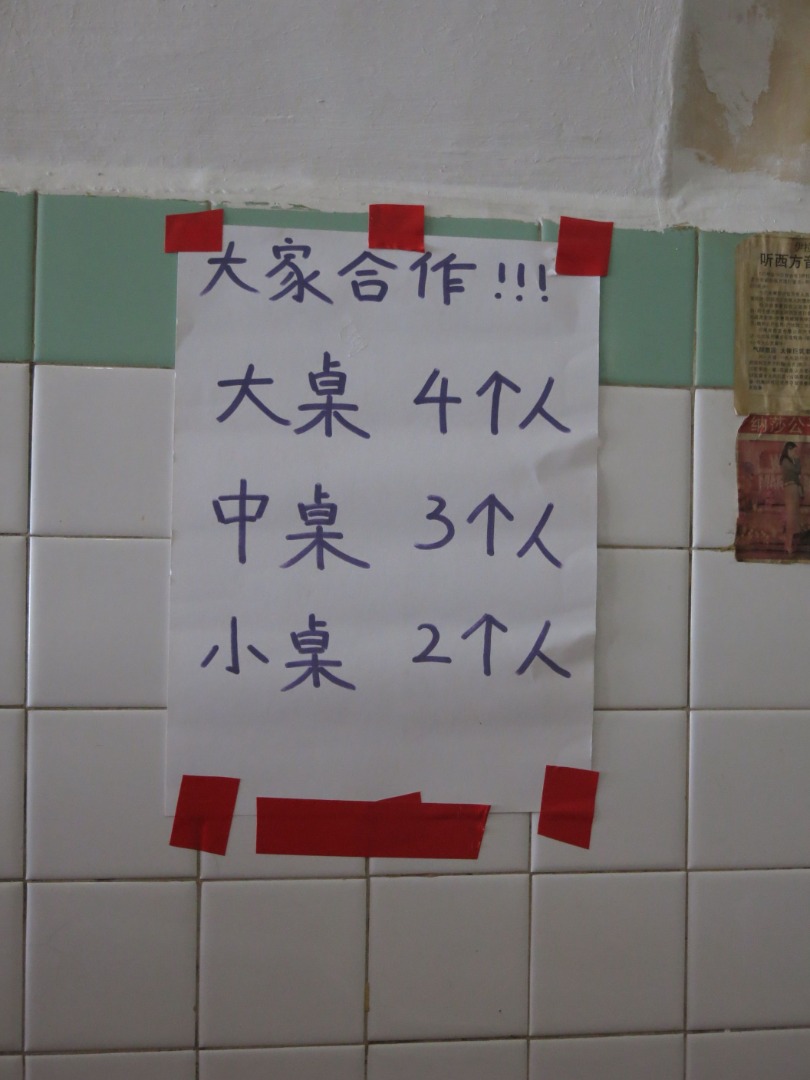 大家合作!!!
大桌 4个人
中桌 3个人
小桌 2个人
听西方音
纳莎公